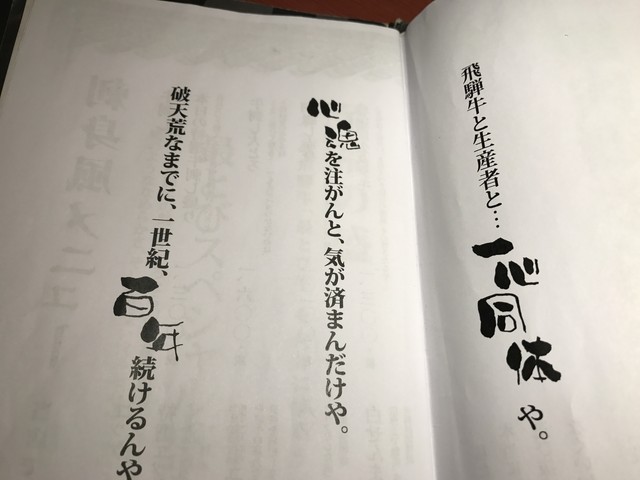 飛騨牛と生産者と…一心同体や。
心魂を注がんと、気が済まんだけや。
破天荒なまでに、一世紀、百年続けるんや